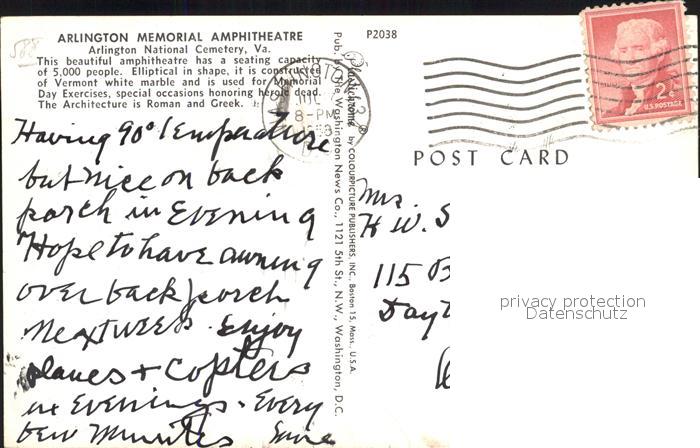 ARLINGTON MEMORIAL AMPHITHEATRE
Arlington National Cemetery, Va.
This beautiful amphitheatre has a seating capacity
of 5,000 people. Elliptical in shape, it is constructed
of Vermont white marble and is used for Memorial
Day Exercises, special occasions honoring heroic dead.
The Architecture is Roman and Greek.
Having 90° temperature
but nice on back
porch in Evening
Hope to have awning
over back porch
next week. Enjoy
planes + copters
in Evenings. Every
few minutes
Pub. by The Washington News Co., 1121 5th St., N.W., Washington, D.C.
Plastichrome® by COLOURPICTURE PUBLISHERS, INC., Boston 15, Mass., U.S.A.
P2038
8-PM
2¢
U.S. POSTAGE
POST CARD
Mrs.
H W. S
115 B
Dayt
privacy protection
Datenschutz